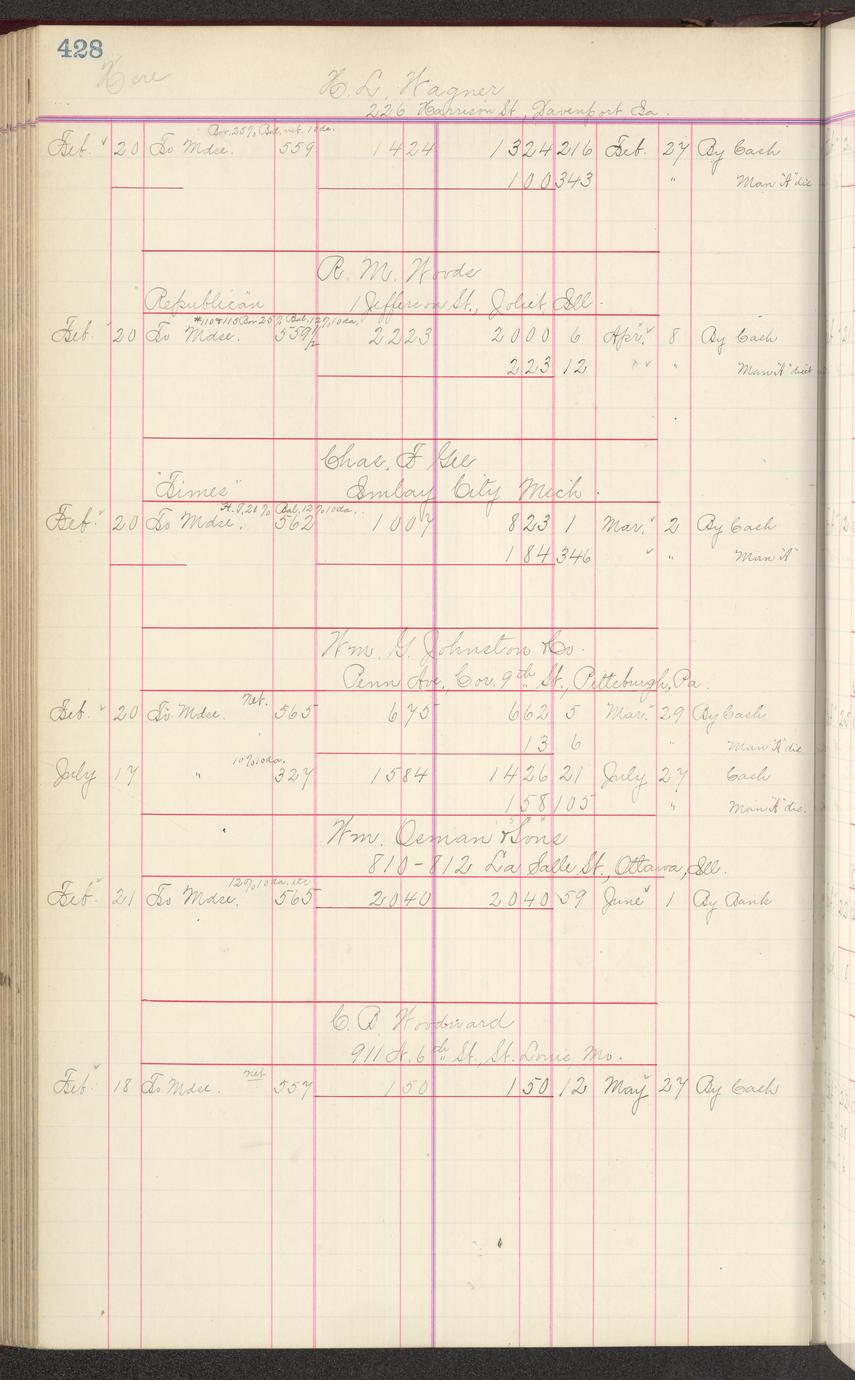 428
Here H. L. Wagner
226 Harrison St., Davenport Ia.
Bor. 25% Bal. net. 10 da.
Feb. 20 To Mdse. 559 1424 1324 216 Feb. 27 By Cash
100 343 " Man "A" dis
R. M. Woods
Republican 1 Jefferson St., Joliet Ill.
#110 & 115 Bor 25% Bal. 12% 10 da.
Feb. 20 To Mdse. 559 1/2 2223 2000 6 Apr. 8 By Cash
223 12 " " Man "A" disct
Chas. F. Gee
"Times" Imlay City Mich.
H. T. 20% Bal. 12% 10 da.
Feb. 20 To Mdse. 562 1007 823 1 Mar. 2 By Cash
184 346 " Man "A"
Wm. G. Johnston & Co.
Penn Ave., Cor. 9th St., Pittsburgh, Pa.
Net.
Feb. 20 To Mdse. 565 675 662 5 Mar. 29 By Cash
13 6 " Man "A" dis
10% 10 da.
July 17 " 327 1584 1426 21 July 27 Cash
158 105 " Man "A" dis.
Wm. Osman & Sons
810-812 La Salle St., Ottawa, Ill.
12% 10 da. etc
Feb. 21 To Mdse. 565 2040 2040 59 June 1 By Bank
C. B. Woodward
911 N. 6th St., St. Louis, Mo.
net
Feb. 18 To Mdse. 557 150 150 12 May 27 By Cash